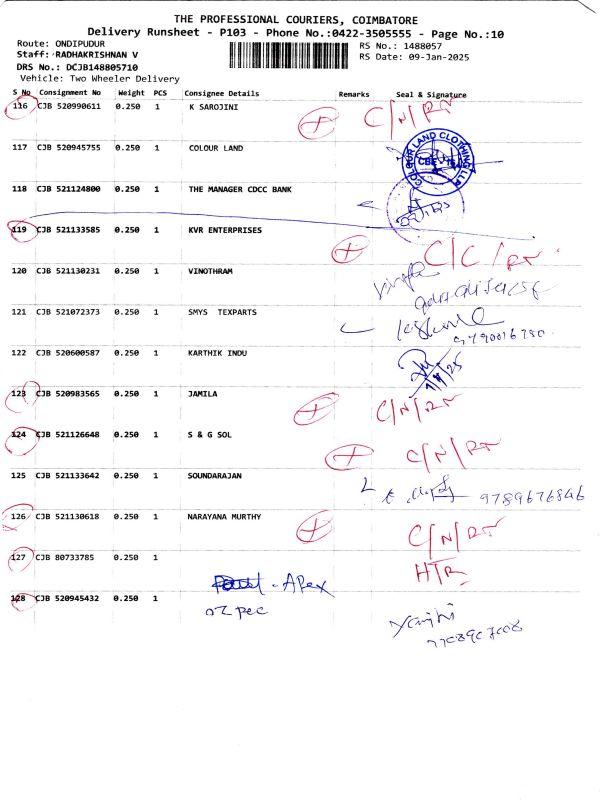 THE PROFESSIONAL COURIERS, COIMBATORE
Delivery Runsheet - P103 - Phone No.:0422-3505555 - Page No.:10
Route: ONDIPUDUR RS No.: 1488057
Staff: RADHAKRISHNAN V RS Date: 09-Jan-2025
DRS No.: DCJB148805710
Vehicle: Two Wheeler Delivery
S No Consignment No Weight PCS Consignee Details Remarks Seal & Signature
116 CJB 520990611 0.250 1 K SAROJINI C/N/RT
117 CJB 520945755 0.250 1 COLOUR LAND
COLOUR LAND CLOTHING LLP
118 CJB 521124800 0.250 1 THE MANAGER CDCC BANK
119 CJB 521133585 0.250 1 KVR ENTERPRISES C/C/RT
120 CJB 521130231 0.250 1 VINOTHRAM
121 CJB 521072373 0.250 1 SMYS TEXPARTS
122 CJB 520600587 0.250 1 KARTHIK INDU
123 CJB 520983565 0.250 1 JAMILA C/N/RT
124 CJB 521126648 0.250 1 S & G SOL C/N/RT
125 CJB 521133642 0.250 1 SOUNDARAJAN 9789676846
126 CJB 521130618 0.250 1 NARAYANA MURTHY C/N/RT
127 CJB 80733785 0.250 1 HTR
Apex
128 CJB 520945432 0.250 1